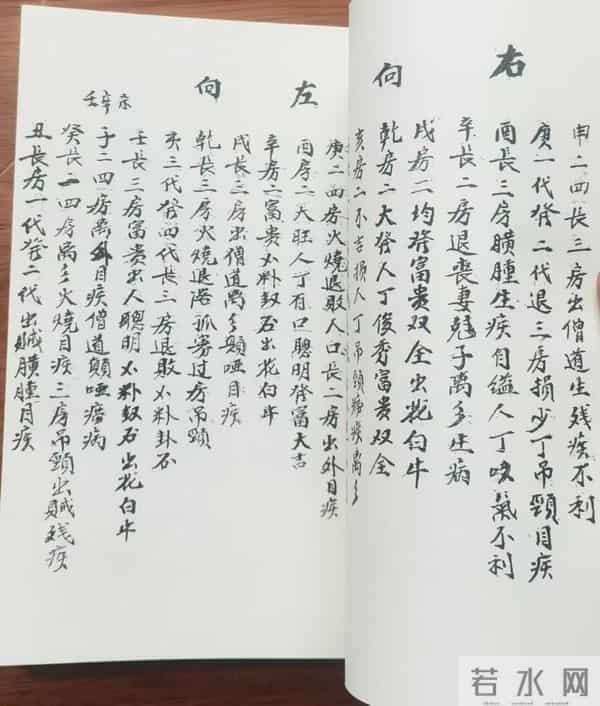 右向
申二四長三房出僧道生残疾不利
庚一代發二代退三房損少丁吊頸目疾
酉長三房横腫生疾自縊人丁咳氣不利
辛長二房退喪妻尅子离乡生病
戌房二均發富貴双全出花白牛
乾房二大發人丁俊秀富貴双全
亥房二不吉損人丁吊頸疾离乡
左向
庚二四房火燒退敗人口長二房出外目疾
酉房二大旺人丁有口聰明發富大吉
辛房二富貴料石出花白牛
戌長三房出僧道离乡顛啞目疾
乾長三房火燒退落孤寡过房吊頸
亥三代發四代長三房退敗料卦石
壬長三房富貴出人聰明料石出花白牛
子二四房离外目疾僧道顛啞病
癸長一四房离乡火燒目疾三房吊頸出賊残疾
丑長房一代發二代出賊横腫目疾
若水网